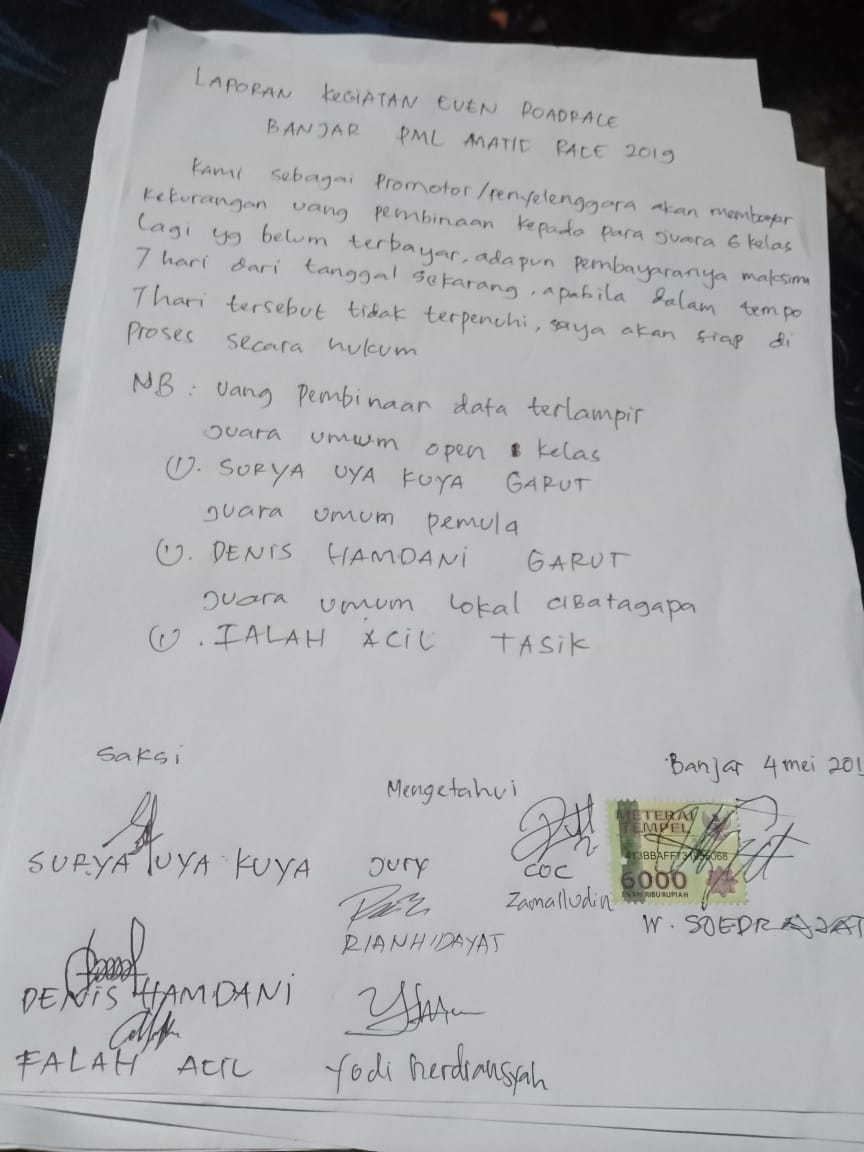 LAPORAN KEGIATAN EVEN ROADRACE
BANJAR PML MATIC RACE 2019
Kami sebagai Promotor/Penyelenggara akan membayar
kekurangan uang pembinaan kepada para juara 6 kelas
lagi yg belum terbayar, adapun pembayaranya maksim
7 hari dari tanggal sekarang, apabila dalam tempo
7 hari tersebut tidak terpenuhi, saya akan siap di
Proses secara hukum
NB : Uang Pembinaan data terlampir
Juara umum open kelas
(1). SURYA UYA KUYA GARUT
Juara umum pemula
(1). DENIS HAMDANI GARUT
Juara umum lokal CIBATAGAPA
(1). FALAH ACIL TASIK
Saksi
Mengetahui
Banjar 4 mei 201
SURYA UYA KUYA
DENIS HAMDANI
FALAH ACIL
Jury
RIAN HIDAYAT
Yodi Herdiansyah
COC
Zamalludin
METERAI
TEMPEL
6000
ENAM RIBU RUPIAH
W. SOEDRAJAT